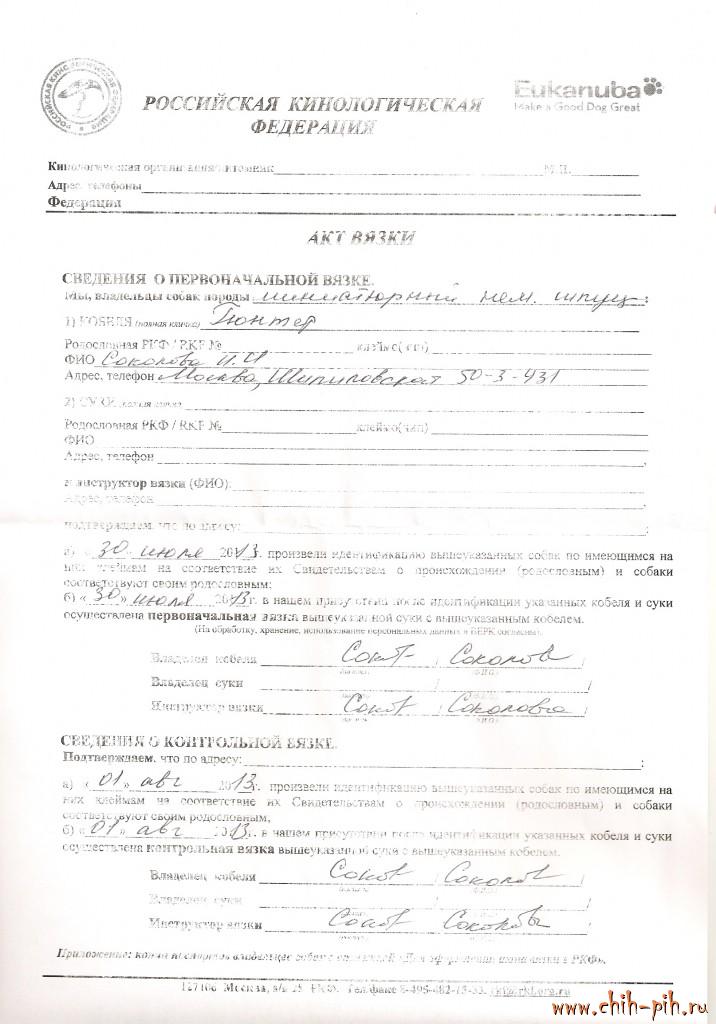 РОССИЙСКАЯ КИНОЛОГИЧЕСКАЯ ФЕДЕРАЦИЯ
Eukanuba
РОССИЙСКАЯ КИНОЛОГИЧЕСКАЯ
Make a Good Dog Great
ФЕДЕРАЦИЯ
Кинологическая организация/питомник
Адрес, телефоны
Федерация
АКТ ВЯЗКИ
СВЕДЕНИЯ О ПЕРВОНАЧАЛЬНОЙ ВЯЗКЕ.
Мы, владельцы собак породы миниатюрный нем. шпиц;
1) КОБЕЛЯ (полная кличка) Гюнтер
Родословная РКФ / RKF № клеймо(чип)
ФИО Соколова И.И
Адрес, телефон Москва, Шипиловская 50-3-431
2) СУКИ (полная кличка)
Родословная РКФ / RKF № клеймо(чип)
ФИО
Адрес, телефон
и инструктор вязки (ФИО):
Адрес, телефон
подтверждаем, что по адресу:
а) «30» июля 2013г. произвели идентификацию вышеуказанных собак по имеющимся на
них клеймам на соответствие их Свидетельствам о происхождении (родословным) и собаки
соответствуют своим родословным;
б) «30» июля 2013г. в нашем присутствии после идентификации указанных кобеля и суки
осуществлена первоначальная вязка вышеуказанной суки с вышеуказанным кобелем.
(На обработку, хранение, использование персональных данных в ВЕРК согласны).
Владелец кобеля Сокол (Соколов
Владелец суки
Инструктор вязки Сокол (Соколова
СВЕДЕНИЯ О КОНТРОЛЬНОЙ ВЯЗКЕ.
Подтверждаем, что по адресу:
а) «01» авг 2013г. произвели идентификацию вышеуказанных собак по имеющимся на
них клеймам на соответствие их Свидетельствам о происхождении (родословным) и собаки
соответствуют своим родословным,
б) «01» авг 2013г. в нашем присутствии после идентификации указанных кобеля и суки
осуществлена контрольная вязка вышеуказанной суки с вышеуказанным кобелем.
Владелец кобеля (Соколов
Владелец суки
Инструктор вязки (Соколов
Приложение:
Москва, РКФ.
www.chih-pih.ru